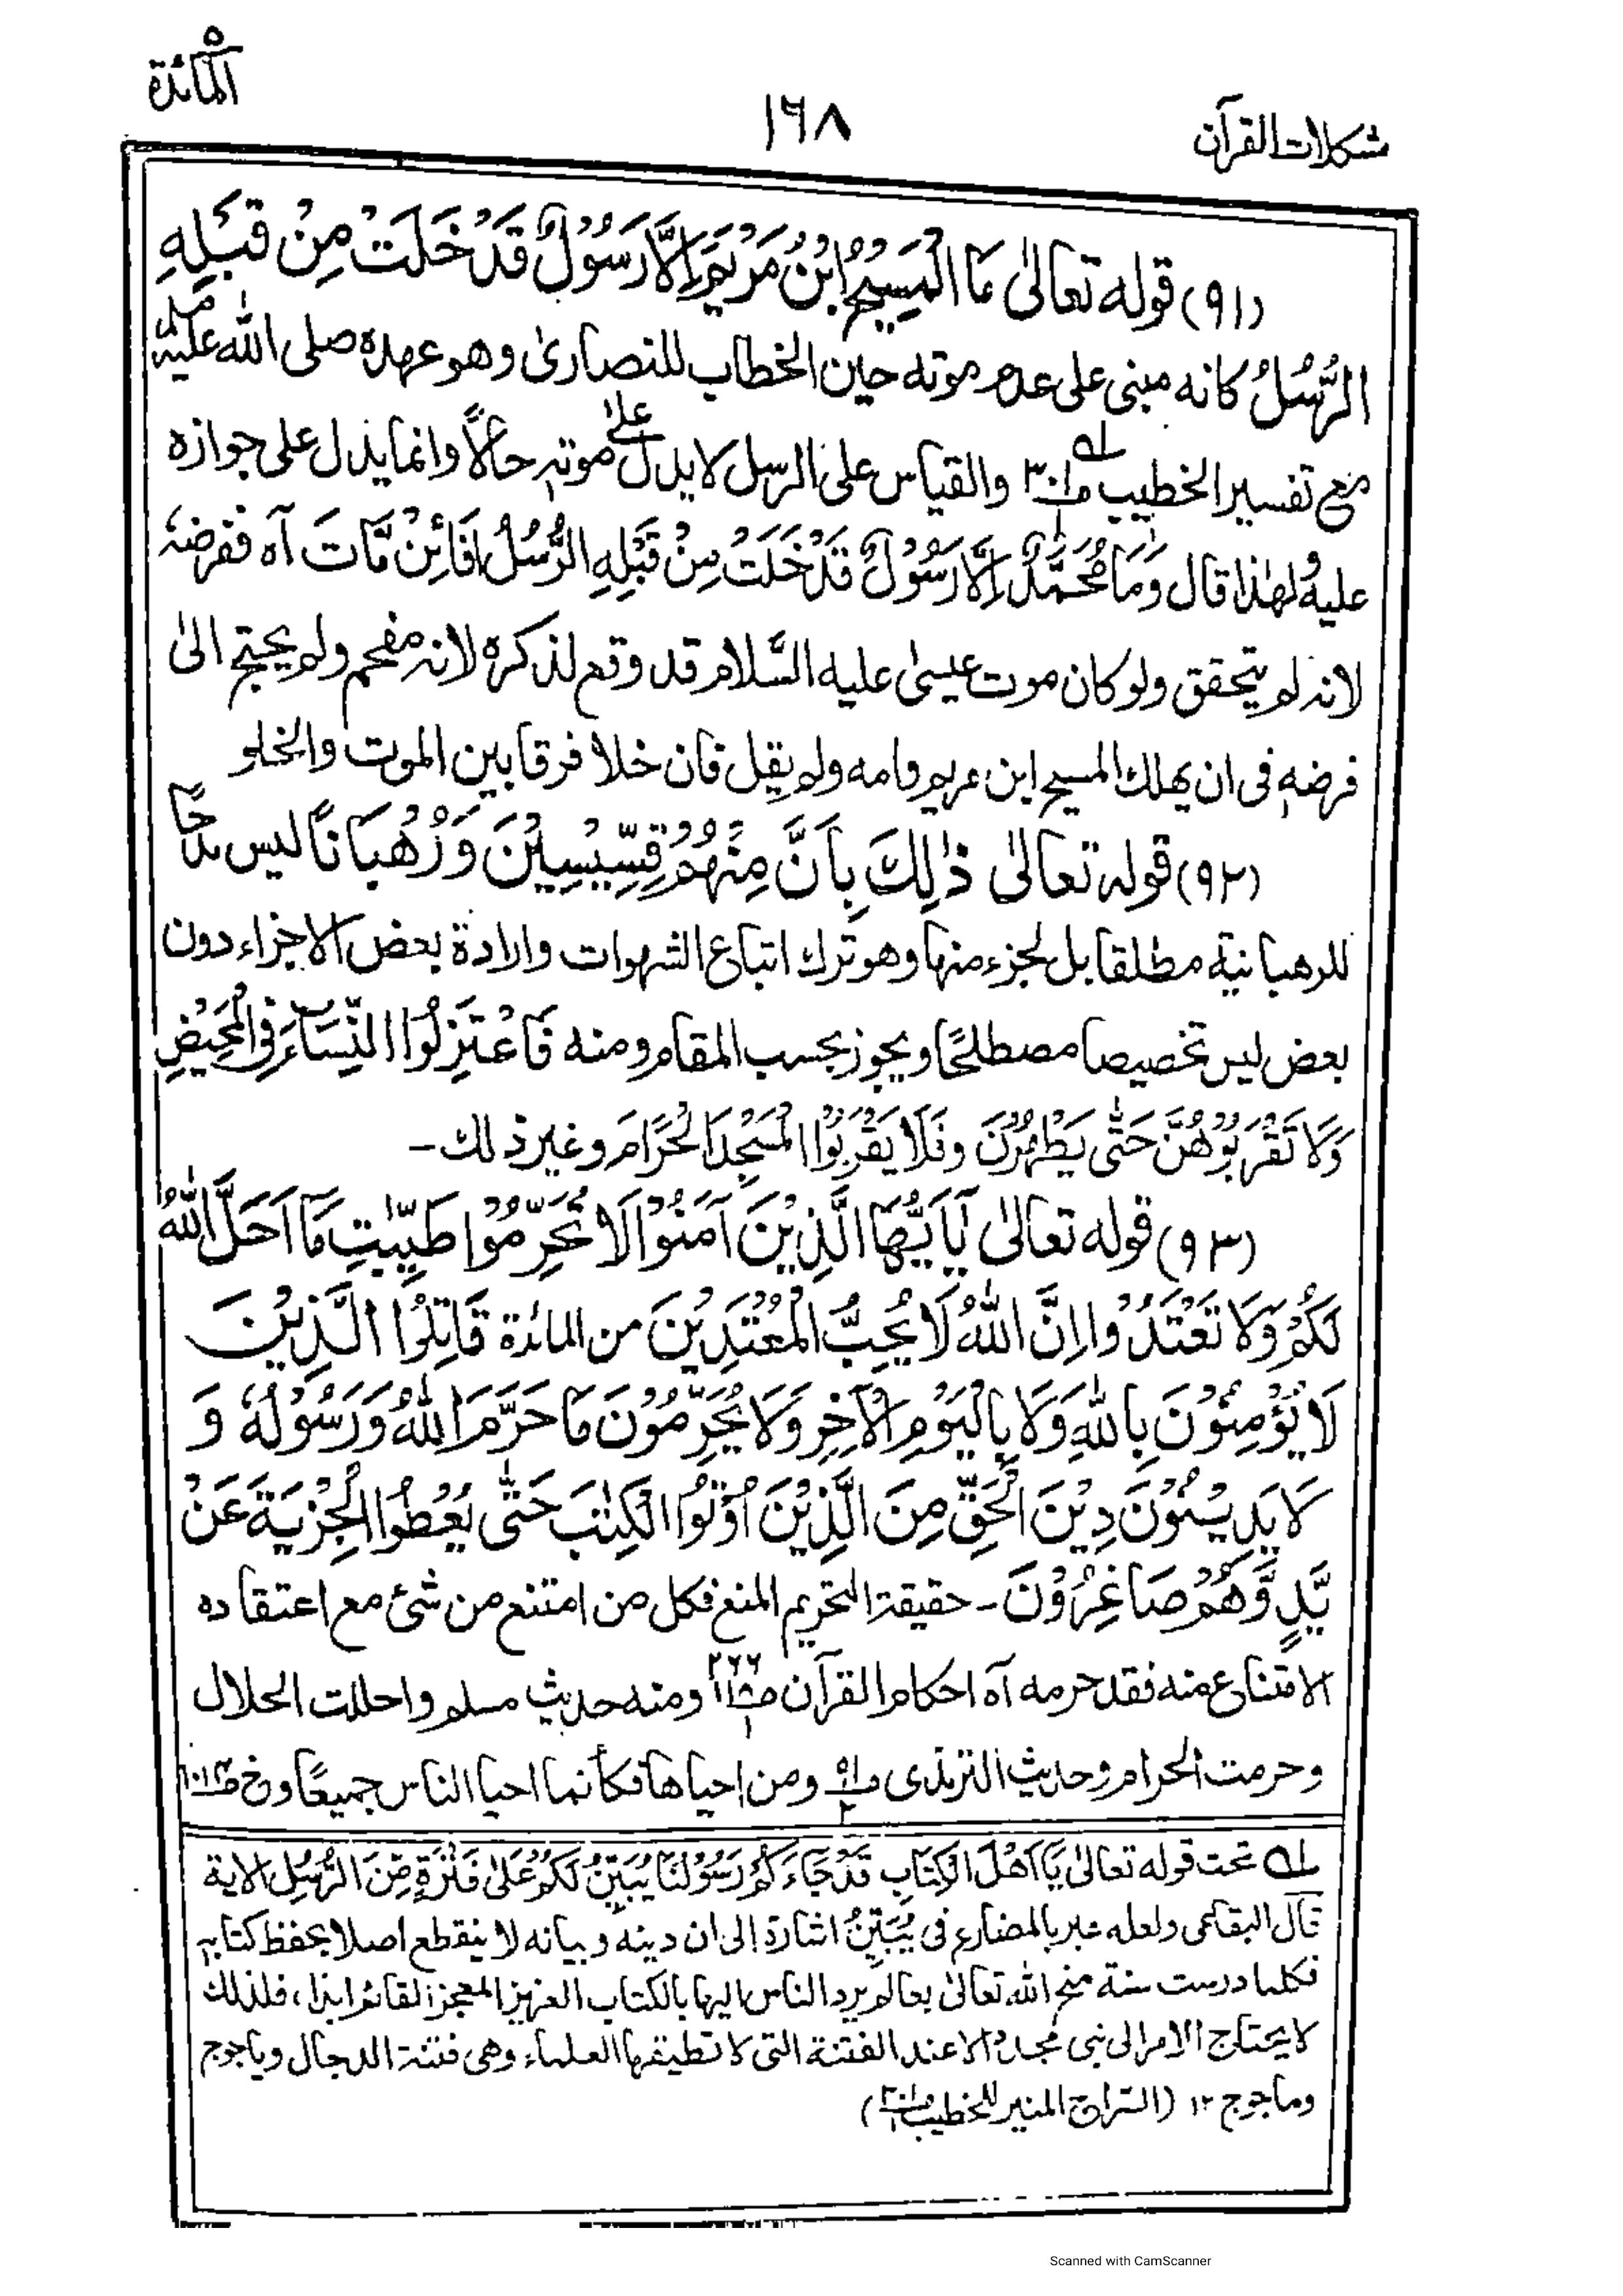 المائدة ٥
١٦٨
مشكلات القرآن
(٩١) قوله تعالىٰ مَا الْمَسِيْحُ ابْنُ مَرْيَمَ اِلَّا رَسُوْلٌ قَدْ خَلَتْ مِنْ قَبْلِهِ
الرُّسُلُ كانه مبنى على عدم موته حين الخطاب للنصارىٰ وهو عهده صلى الله عليه وسلم
مع تفسير الخطيب والقياس على الرسل لا يدل علىٰ موته حالًا وانما يدل على جوازه
عليه ولهٰذا قال وَمَا مُحَمَّدٌ اِلَّا رَسُوْلٌ قَدْ خَلَتْ مِنْ قَبْلِهِ الرُّسُلُ اَفَائِنْ مَّاتَ آه ففرضهٗ
لانه لم يتحقق ولو كان موت عيسىٰ عليه السَّلام قد وقع لذكره لانه مفحم ولم يحتج الىٰ
فرضه فى ان يهلك المسيح ابن مريم وامه ولم يقل فان خلا فرقا بين الموت والخلو
(٩٢) قوله تعالىٰ ذٰلِكَ بِاَنَّ مِنْهُمْ قِسِّيْسِيْنَ وَرُهْبَانًا ليس مدحًا
للرهبانية مطلقا بل لجزء منها وهو ترك اتباع الشهوات وارادة بعض الاجزاء دون
بعض ليس تخصيصا مصطلحًا ويجوز بحسب المقام ومنه فَاعْتَزِلُوا النِّسَآءَ فِى الْمَحِيْضِ
وَلَا تَقْرَبُوْهُنَّ حَتّٰى يَطْهُرْنَ وفَلَا يَقْرَبُوا الْمَسْجِدَ الْحَرَامَ وغير ذلك ـ
(٩٣) قوله تعالىٰ يَآ اَيُّهَا الَّذِيْنَ آمَنُوْا لَا تُحَرِّمُوْا طَيِّبٰتِ مَآ اَحَلَّ اللّٰهُ
لَكُمْ وَلَا تَعْتَدُوْا اِنَّ اللّٰهَ لَا يُحِبُّ الْمُعْتَدِيْنَ من المائدة قَاتِلُوا الَّذِيْنَ
لَا يُؤْمِنُوْنَ بِاللّٰهِ وَلَا بِالْيَوْمِ الْاٰخِرِ وَلَا يُحَرِّمُوْنَ مَا حَرَّمَ اللّٰهُ وَرَسُوْلُهٗ وَ
لَا يَدِيْنُوْنَ دِيْنَ الْحَقِّ مِنَ الَّذِيْنَ اُوْتُوا الْكِتٰبَ حَتّٰى يُعْطُوا الْجِزْيَةَ عَنْ
يَّدٍ وَّهُمْ صَاغِرُوْنَ ـ حقيقة التحريم المنع فكل من امتنع من شئ مع اعتقاده
الامتناع منه فقد حرمه آه احكام القرآن ومنه حديث مسلم واحللت الحلال
وحرمت الحرام وحديث الترمذى ومن احياها فكأنما احيا الناس جميعًا وخ
لـه تحت قوله تعالىٰ يَآ اَهْلَ الْكِتَابِ قَدْ جَآءَكُمْ رَسُوْلُنَا يُبَيِّنُ لَكُمْ عَلٰى فَتْرَةٍ مِّنَ الرُّسُلِ الاية
قال البقاعى ولعله عبر بالمضارع فى يُبَيِّنُ اشارة الى ان دينه وبيانه لا ينقطع اصلا بحفظ كتابه
فكلما درست سنة منح الله تعالىٰ بعالم يرد الناس اليها بالكتاب العزيز المعجز القائم ابدا، فلذلك
لا يحتاج الامر الى نبى مجدد الا عند الفتنة التى لا تطيقها العلماء وهى فتنة الدجال وياجوج
وماجوج ١٢ (السراج المنير للخطيب)
Scanned with CamScanner